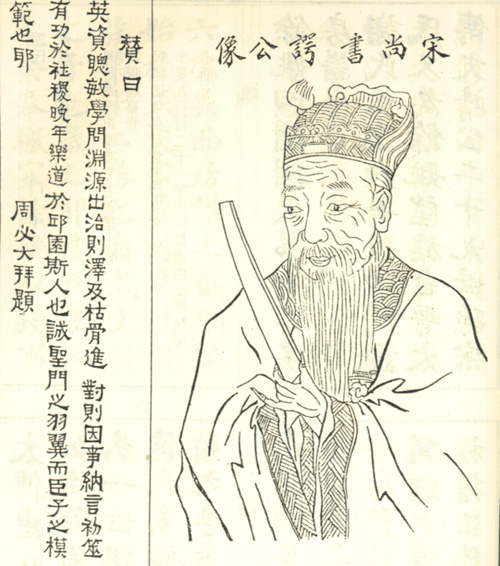 宋尚書諤公像
贊曰
英資聰敏學問淵源出治則澤及枯骨進對則因事納言初筮
有功於社稷晚年樂道於邱園斯人也誠聖門之羽翼而臣子之模
範也耶 周必大拜題